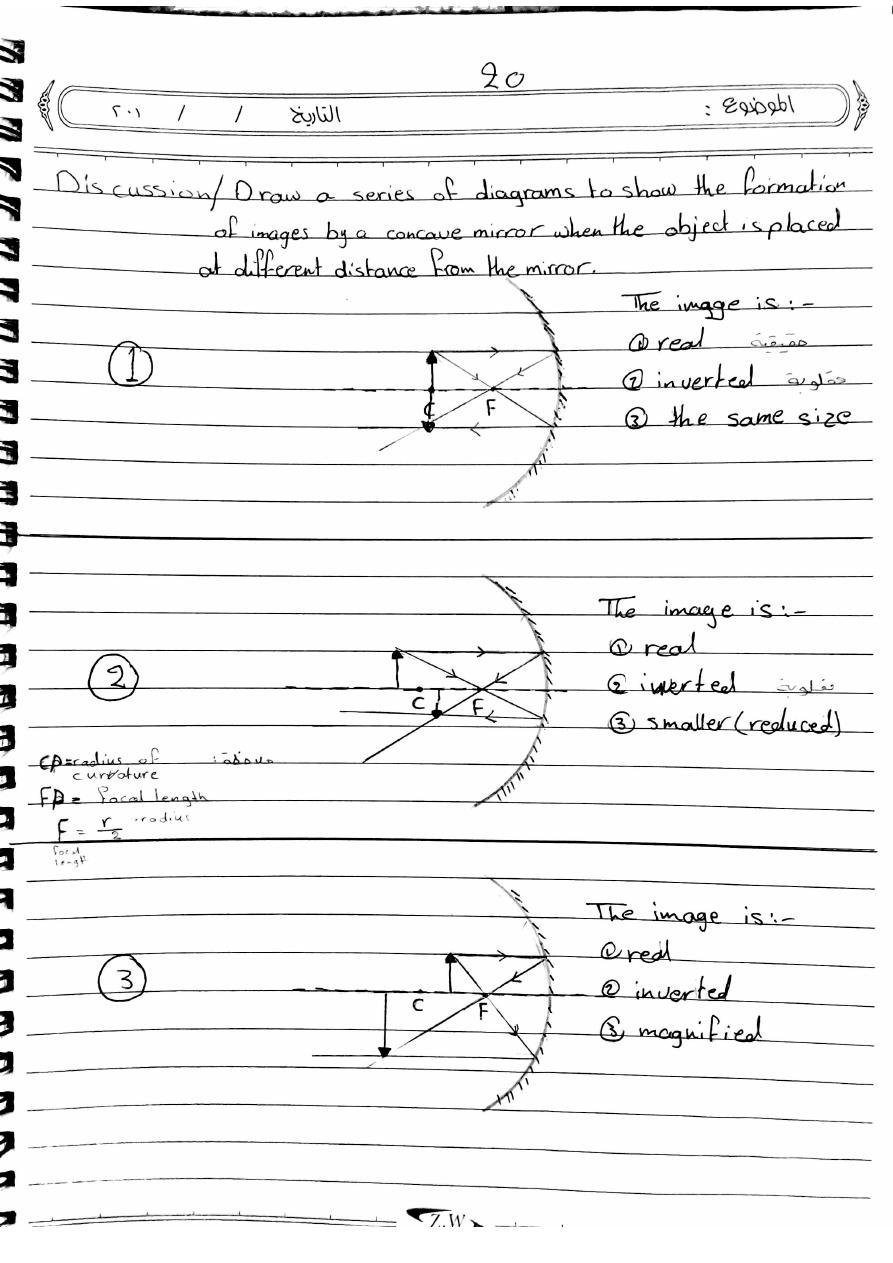 20
الموضوع :
التاريخ / / ٢٠١
Discussion/ Draw a series of diagrams to show the formation
of images by a concave mirror when the object is placed
at different distance from the mirror.
The image is :-
① real حقيقية
② inverted مقلوبة
③ the same size
1
C F
The image is :-
① real
② inverted مقلوبة
③ smaller (reduced)
2
C F
CP = radius of
curvature
FP = Focal length
F = r/2 radius
focal
length
The image is :-
① real
② inverted
③ magnified
3
C F
Z.W